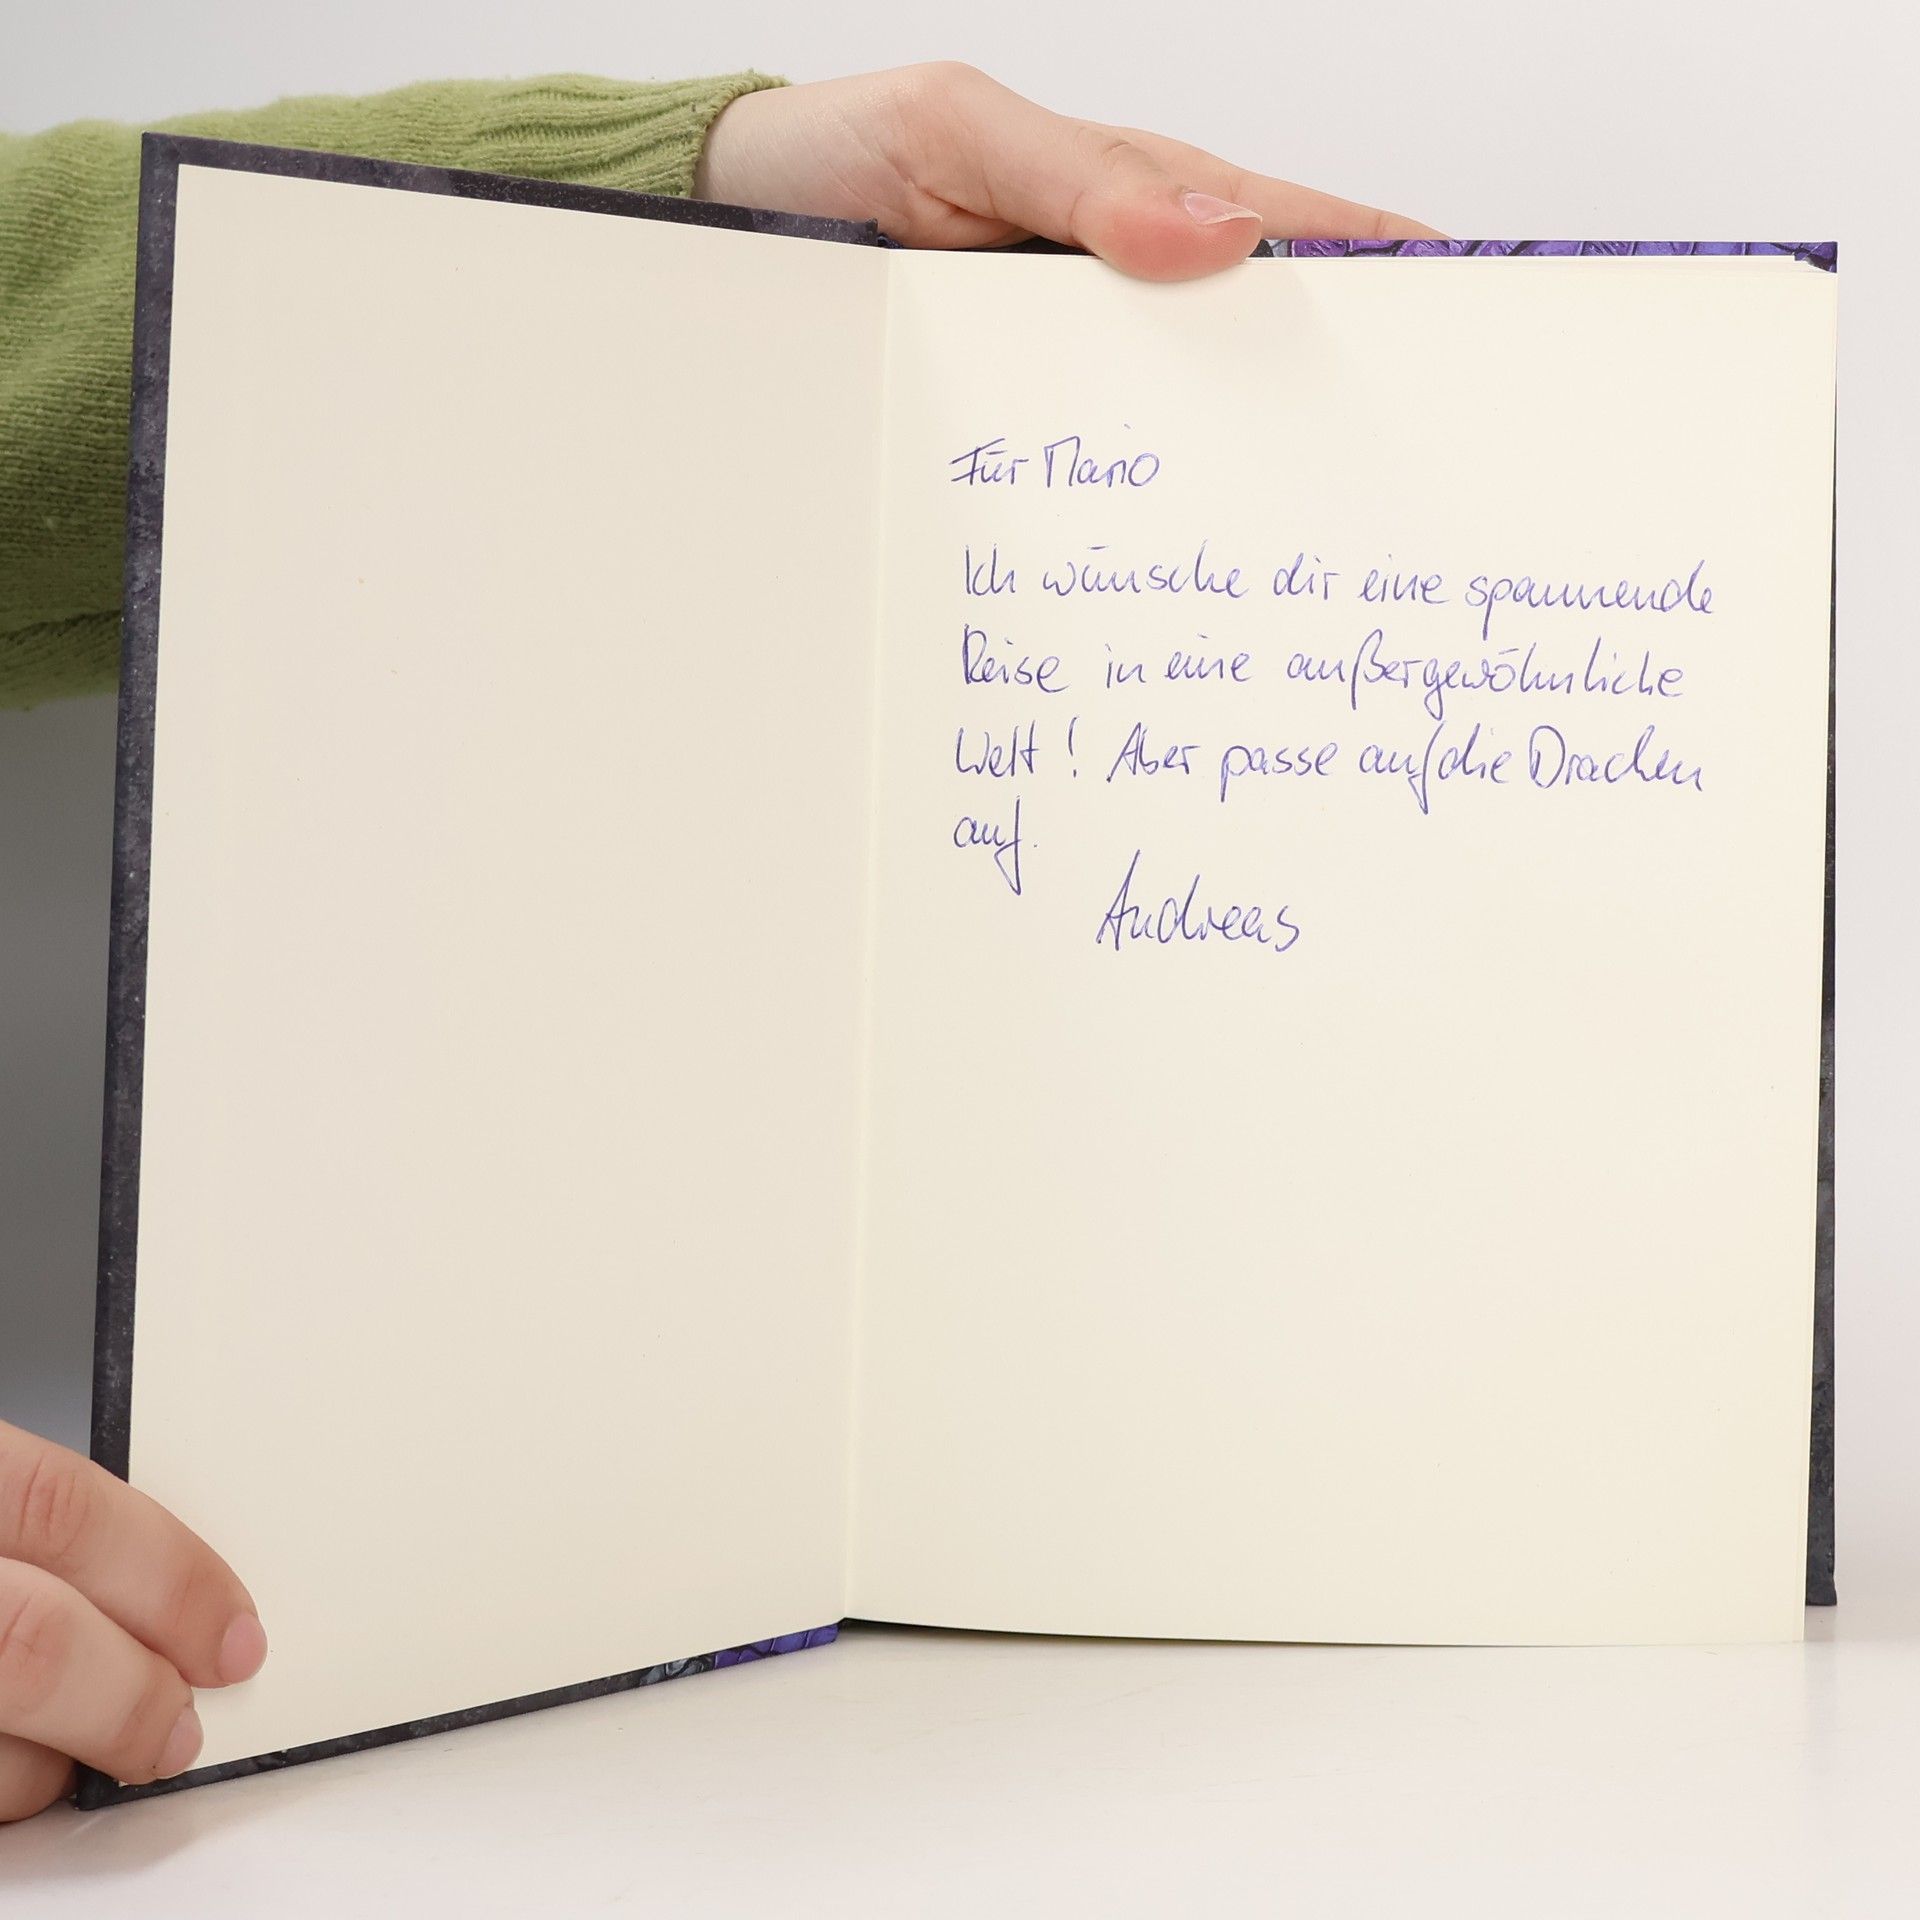 Für Mario
Ich wünsche dir eine spannende
Reise in eine außergewöhnliche
Welt! Aber passe auf die Drachen
auf.
Andreas